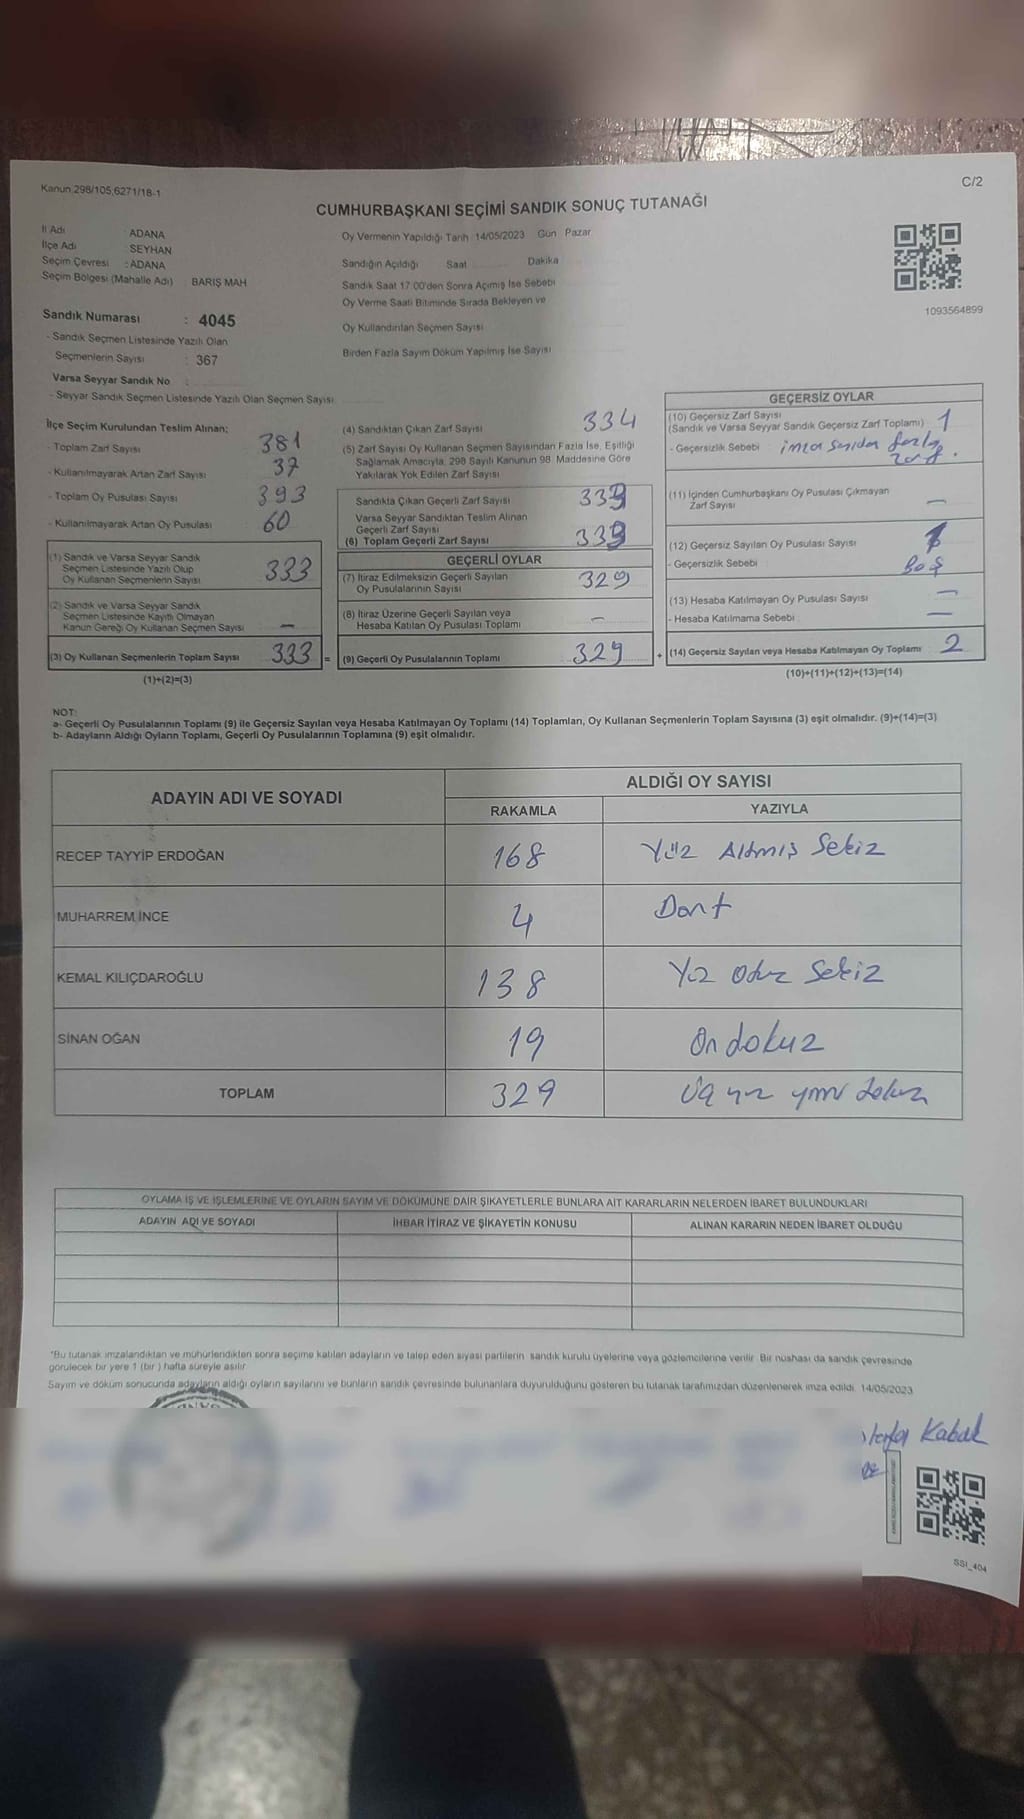 Kanun 298/105,6271/18-1
C/2
CUMHURBAŞKANI SEÇİMİ SANDIK SONUÇ TUTANAĞI
İl Adı ADANA
İlçe Adı SEYHAN
Seçim Çevresi : ADANA
Seçim Bölgesi (Mahalle Adı) : BARIŞ MAH
Sandık Numarası : 4045
- Sandık Seçmen Listesinde Yazılı Olan
Seçmenlerin Sayısı : 367
Varsa Seyyar Sandık No :
- Seyyar Sandık Seçmen Listesinde Yazılı Olan Seçmen Sayısı
Oy Vermenin Yapıldığı Tarih 14/05/2023 Gün Pazar
Sandığın Açıldığı Saat Dakika
Sandık Saat 17.00'den Sonra Açımış İse Sebebi
Oy Verme Saati Bitiminde Sırada Bekleyen ve
Oy Kullandırılan Seçmen Sayısı
Birden Fazla Sayım Döküm Yapılmış İse Sayısı
1093564899
İlçe Seçim Kurulundan Teslim Alınan;
- Toplam Zarf Sayısı 381
- Kullanılmayarak Artan Zarf Sayısı 37
- Toplam Oy Pusulası Sayısı 393
- Kullanılmayarak Artan Oy Pusulası 60
(1) Sandık ve Varsa Seyyar Sandık
Seçmen Listesinde Yazılı Olup
Oy Kullanan Seçmenlerin Sayısı 333
(2) Sandık ve Varsa Seyyar Sandık
Seçmen Listesinde Kayıtlı Olmayan
Kanun Gereği Oy Kullanan Seçmen Sayısı –
(3) Oy Kullanan Seçmenlerin Toplam Sayısı 333 =
(1)+(2)=(3)
(4) Sandıktan Çıkan Zarf Sayısı 334
(5) Zarf Sayısı Oy Kullanan Seçmen Sayısından Fazla İse, Eşitliği
Sağlamak Amacıyla, 298 Sayılı Kanunun 98. Maddesine Göre
Yakılarak Yok Edilen Zarf Sayısı
Sandıkta Çıkan Geçerli Zarf Sayısı 333
Varsa Seyyar Sandıktan Teslim Alınan
Geçerli Zarf Sayısı
(6) Toplam Geçerli Zarf Sayısı 333
GEÇERLİ OYLAR
(7) İtiraz Edilmeksizin Geçerli Sayılan
Oy Pusulalarının Sayısı 329
(8) İtiraz Üzerine Geçerli Sayılan veya
Hesaba Katılan Oy Pusulası Toplamı –
(9) Geçerli Oy Pusulalarının Toplamı 329 +
GEÇERSİZ OYLAR
(10) Geçersiz Zarf Sayısı
(Sandık ve Varsa Seyyar Sandık Geçersiz Zarf Toplamı) 1
- Geçersizlik Sebebi imza sayıdan fazla
zarf.
(11) İçinden Cumhurbaşkanı Oy Pusulası Çıkmayan
Zarf Sayısı –
(12) Geçersiz Sayılan Oy Pusulası Sayısı
- Geçersizlik Sebebi Boş
(13) Hesaba Katılmayan Oy Pusulası Sayısı –
- Hesaba Katılmama Sebebi –
(14) Geçersiz Sayılan veya Hesaba Katılmayan Oy Toplamı 2
(10)+(11)+(12)+(13)=(14)
NOT:
a- Geçerli Oy Pusulalarının Toplamı (9) ile Geçersiz Sayılan veya Hesaba Katılmayan Oy Toplamı (14) Toplamları, Oy Kullanan Seçmenlerin Toplam Sayısına (3) eşit olmalıdır. (9)+(14)=(3)
b- Adayların Aldığı Oyların Toplamı, Geçerli Oy Pusulalarının Toplamına (9) eşit olmalıdır.
ADAYIN ADI VE SOYADI ALDIĞI OY SAYISI
RAKAMLA YAZIYLA
RECEP TAYYİP ERDOĞAN 168 Yüz Altmış Sekiz
MUHARREM İNCE 4 Dört
KEMAL KILIÇDAROĞLU 138 Yüz Otuz Sekiz
SİNAN OĞAN 19 On dokuz
TOPLAM 329 Üç yüz yirmi dokuz
OYLAMA İŞ VE İŞLEMLERİNE VE OYLARIN SAYIM VE DÖKÜMÜNE DAİR ŞİKAYETLERLE BUNLARA AİT KARARLARIN NELERDEN İBARET BULUNDUKLARI
ADAYIN ADI VE SOYADI İHBAR İTİRAZ VE ŞİKAYETİN KONUSU ALINAN KARARIN NEDEN İBARET OLDUĞU
*Bu tutanak imzalandıktan ve mühürlendikten sonra seçime katılan adayların ve talep eden siyasi partilerin sandık kurulu üyelerine veya gözlemcilerine verilir. Bir nüshası da sandık çevresinde
görülecek bir yere 1 (bir ) hafta süreyle asılır.
Sayım ve döküm sonucunda adayların aldığı oyların sayılarını ve bunların sandık çevresinde bulunanlara duyurulduğunu gösteren bu tutanak tarafımızdan düzenlenerek imza edildi. 14/05/2023
Kabak
SSI_404